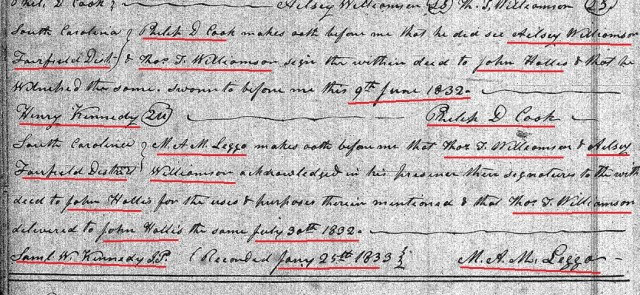 Phil. D Cook } Ailsey Williamson (LS) Th. T. Williamson (LS)
South Carolina } Philip D Cook makes oath before me that he did see Ailsey Williamson
Fairfield Dist. } & Thos T. Williamson sign the within deed to John Hollis & that he
Witnessed the same. sworn to before me this 9th June 1832.
Henry Kennedy Philip D Cook
South Carolina } M. A. M. Leggo makes oath before me that Thos T. Williamson & Ailsey
Fairfield District } Williamson acknowledged in his presence their signatures to the with
deed to John Hollis for the uses & purposes therein mentioned & that Thos T. Williamson
delivered to John Hollis the same July 30th 1832.
Saml W. Kennedy J.P. (Recorded Jany 25th 1833 M. A. M. Leggo